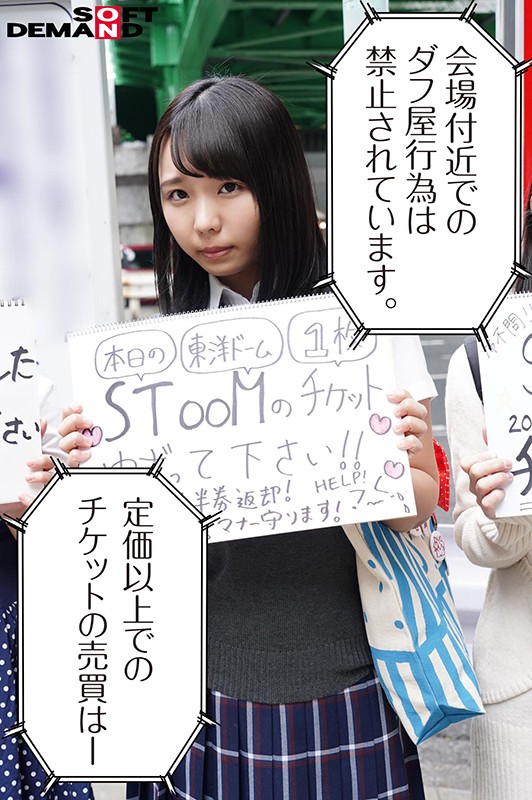 SOFT
DEMAND
会場付近での
ダフ屋行為は
禁止されています。
本日の 東洋ドーム 1枚
STooMのチケット
ゆずって下さい!!
半券返却! HELP!
マナー守ります!
した
さい
20
定価以上での
チケットの売買はー